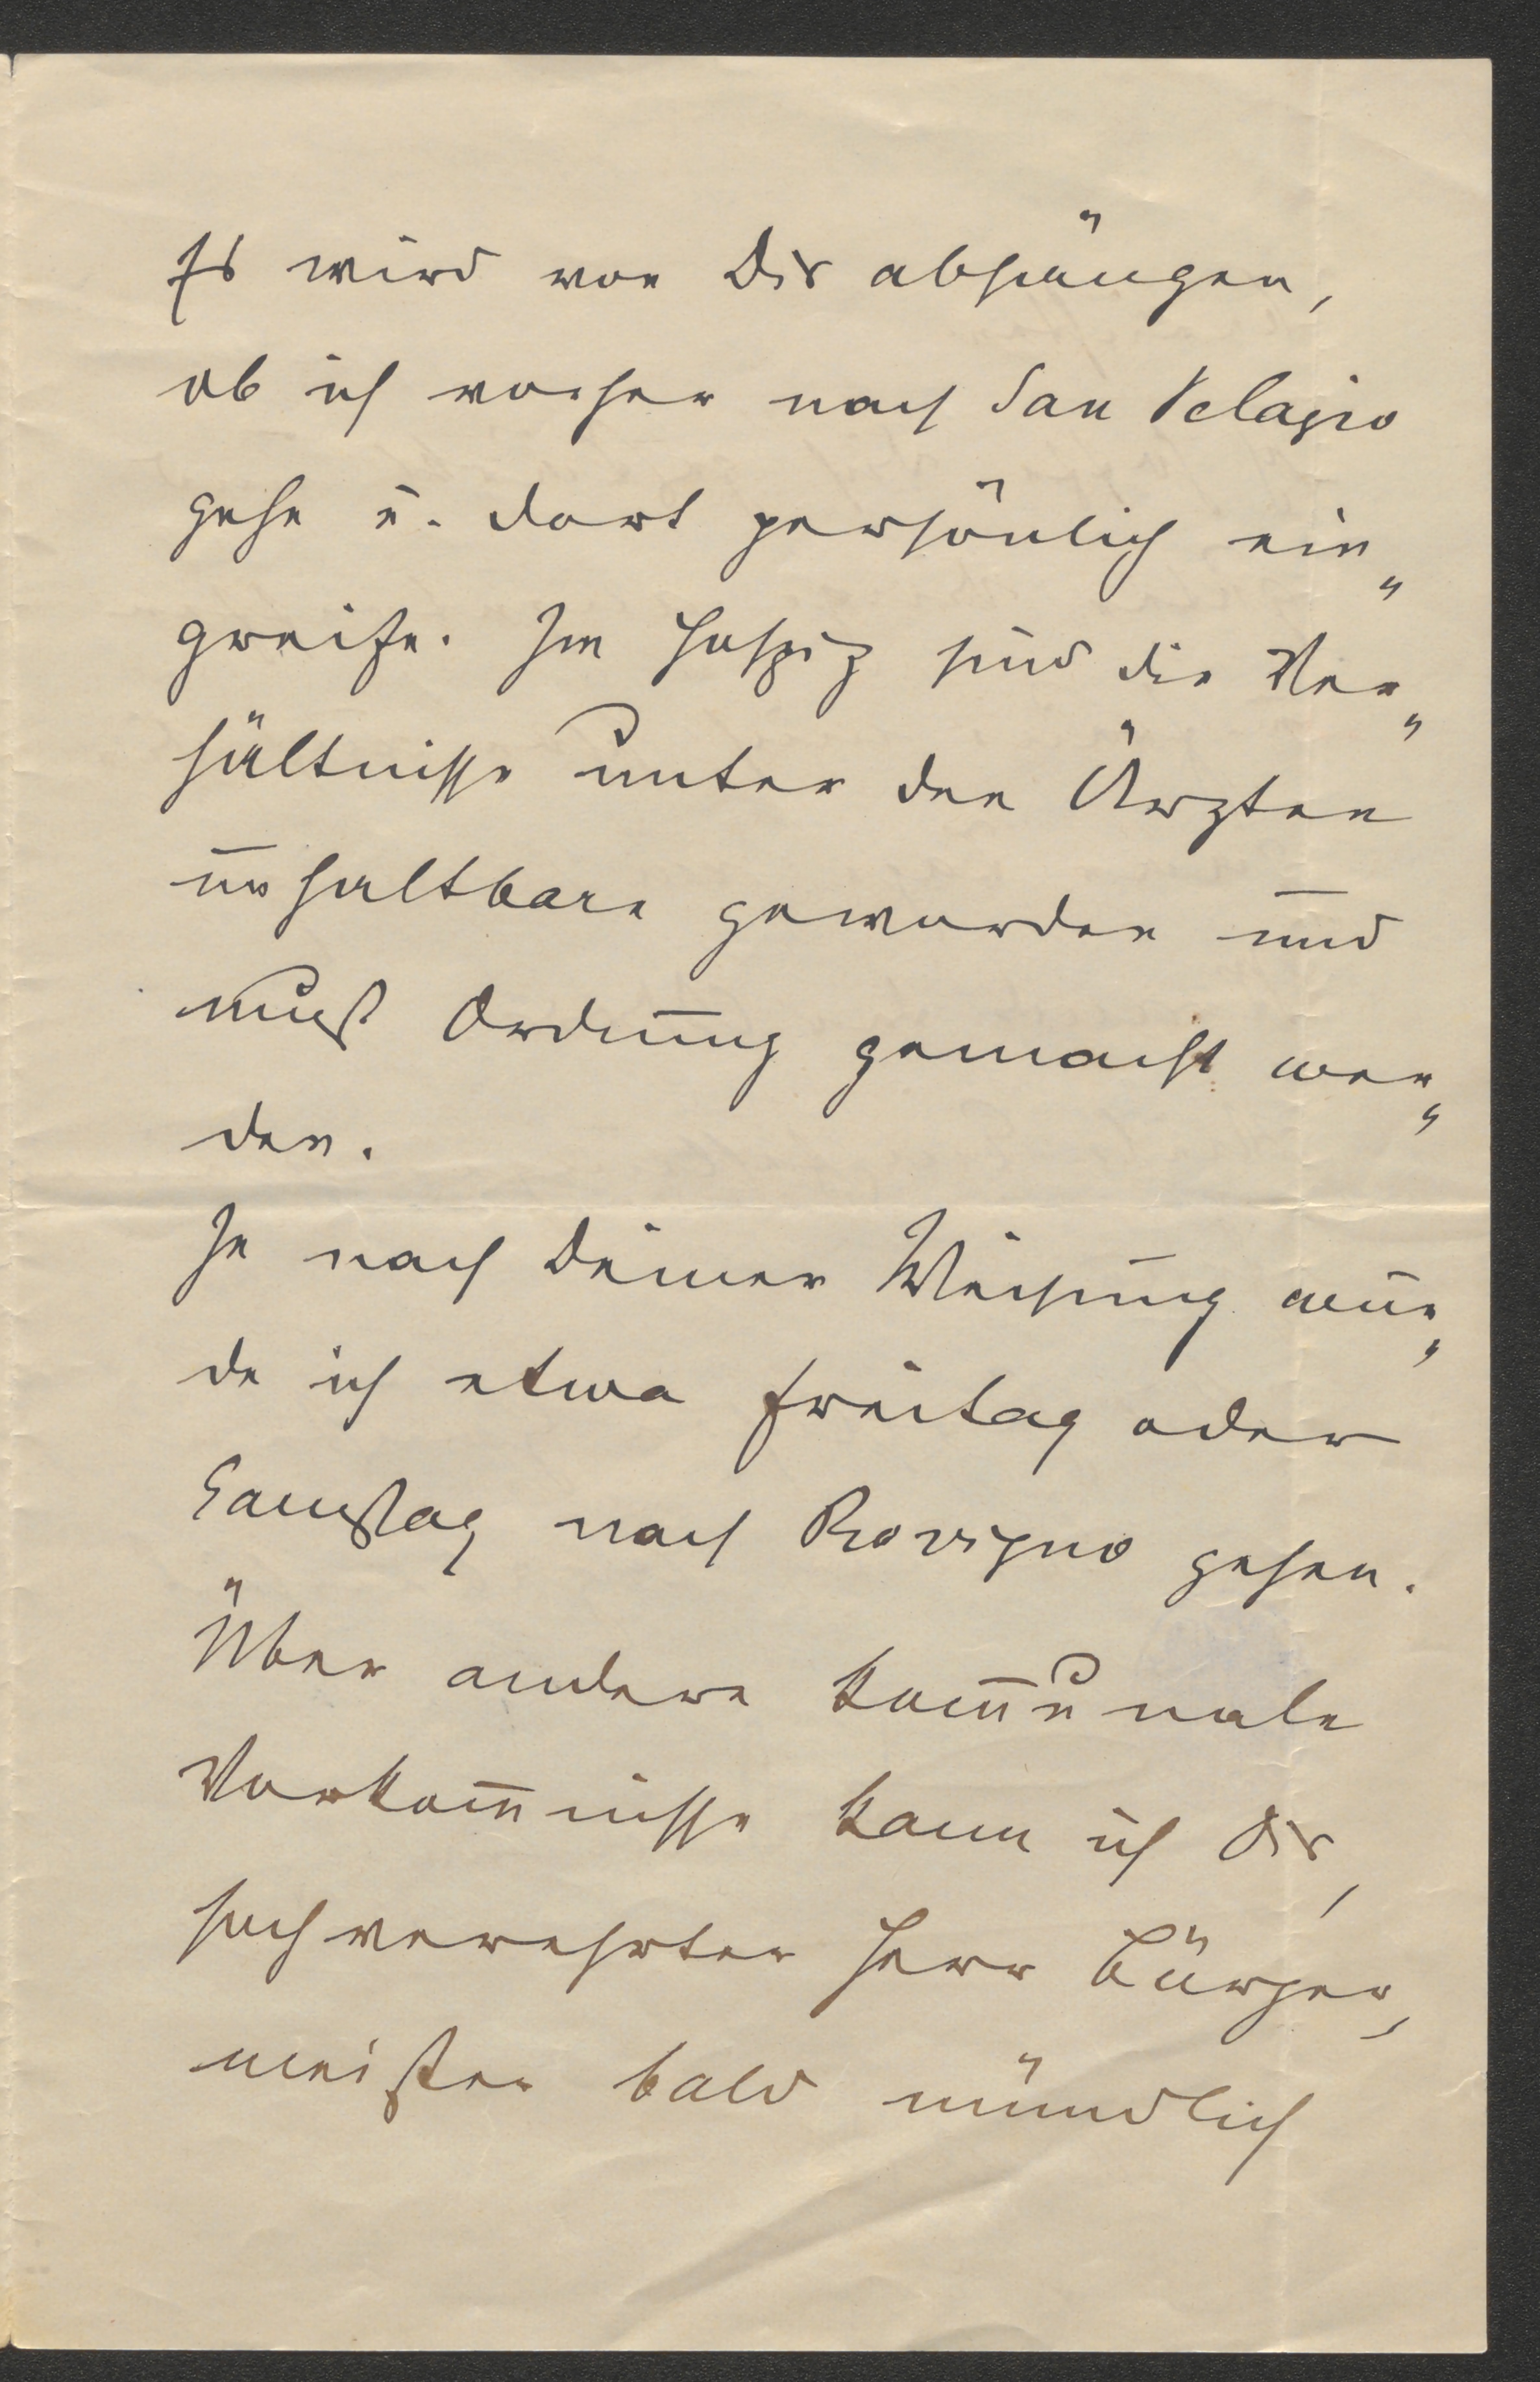 Es wird von Dir abhängen,
ob ich vorher nach San Pelagio
gehe u. dort persönlich ein„
greife. Im Hospiz sind die Ver„
hältnisse unter den Ärzten
unhaltbare geworden und
muß Ordnung gemacht wer„
den.
Je nach Deiner Weisung wür„
de ich etwa Freitag oder
Samstag nach Rovigno gehen.
Über andere kom̅unale
Vorkom̅nisse kann ich Dir,
hochverehrter Herr Bürger„
meister bald mündlich